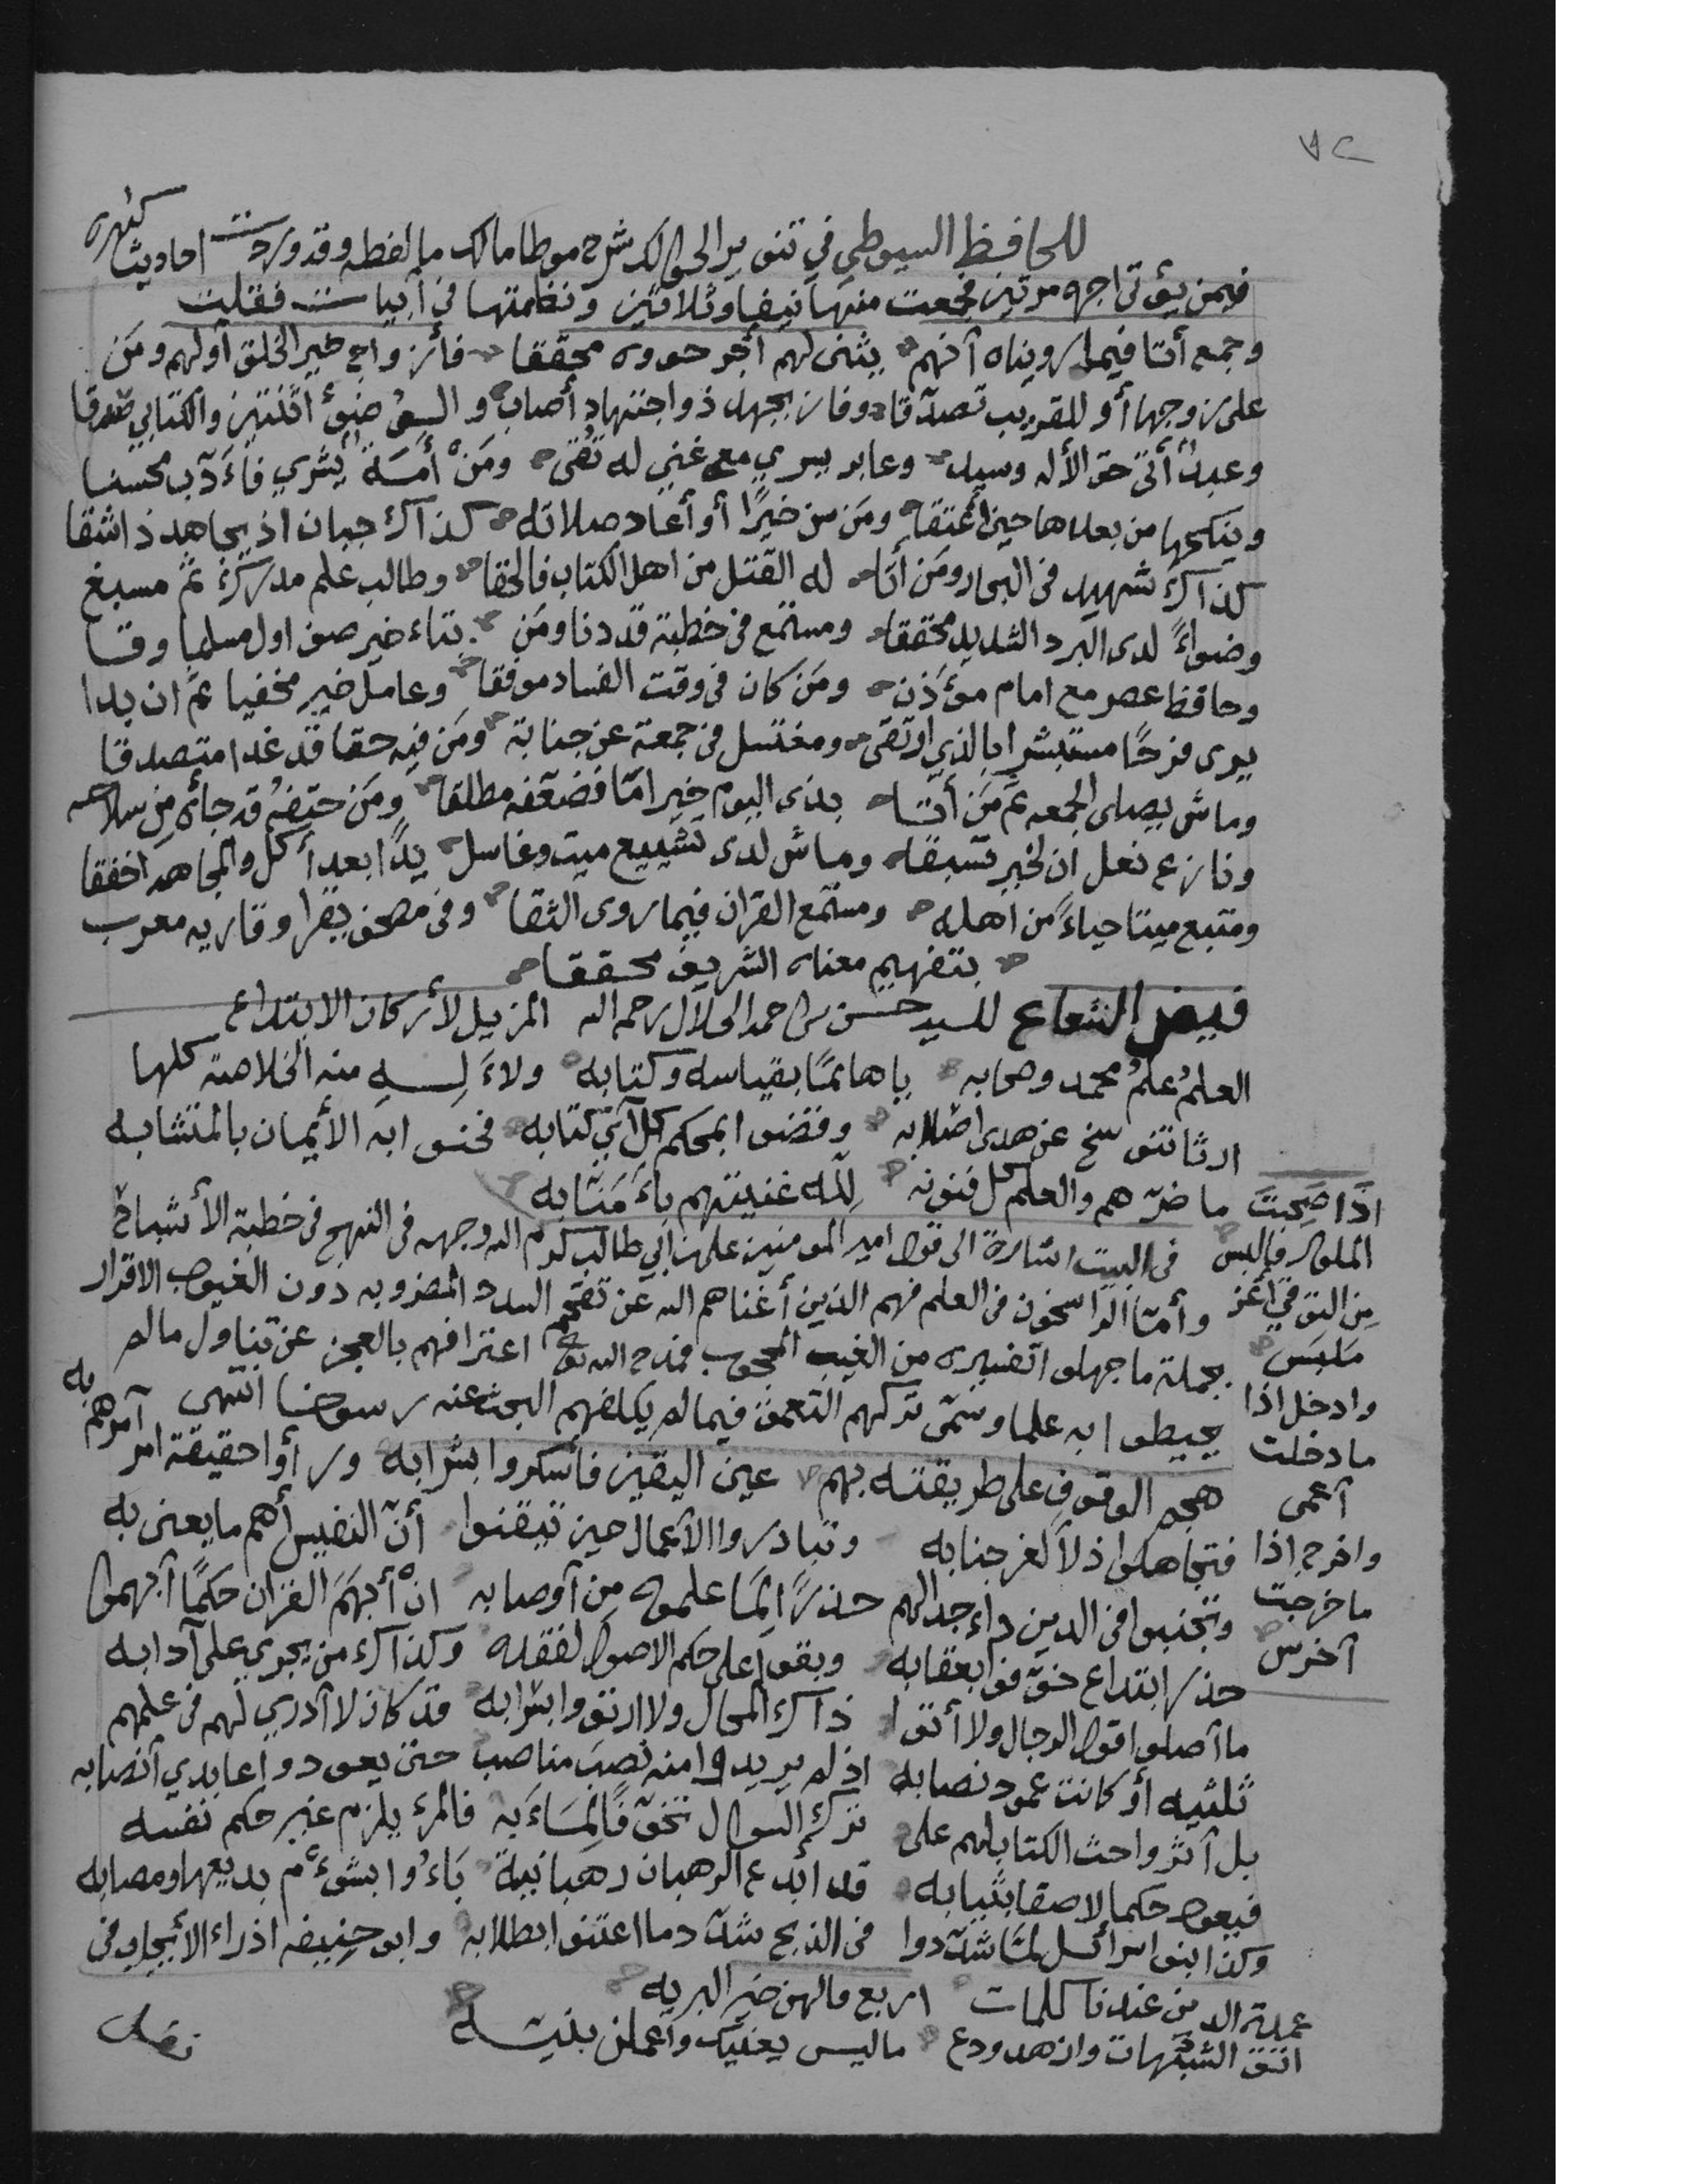 ٧٢
للحافظ السيوطي في تنوير الحوالك شرح موطا مالك ما لفظه وقد وردت احاديث كثيره
فيمن يؤتى اجره مرتين فجمعت منها نيفا وثلاثين ونظمتها في أبيات فقلت
وجمع أتا فيما رويناه أنهم يثنى لهم أجر حووه محققا فأزواج خير الخلق أولهم ومَن
على زوجها أو للقريب تصدّقا وفاز بجهد ذو اجتهاد أصاب والوضوء اثنتين والكتابي صدقا
وعبدٌ أتى حق الأله وسيد وعابر يسري مع غني له تُقى ومَنْ أمَةً يشري فأدّب محسنا
وينكحها من بعدها حين أعتقا ومَن سن خيرًا أو أعاد صلاته كذاك جبان اذ يجاهد ذا شقا
كذاك شهيد في البحار ومَن أتا له القتل من اهل الكتاب فالحقا وطالب علم مدرك ثم مسبغ
وضوءً لدى البرد الشديد محققا ومستمع في خطبة قد دنا ومَن بتاء خير صف اول مسلما وقا
وحافظ عصر مع امام مؤذن ومَن كان في وقت الفساد موفقا وعامل خير مخفيا ثم ان بدا
يرى فرحًا مستبشرا بالذي ارتقى ومغتسل في جمعة عن جنابة ومَن فيه حقا قد غدا متصدقا
وماش يصلى الجمعه ثم مَن أتا بذى اليوم خيرا مّا فضعّفه مطلقا ومَن حتفهُ قد جاءَه من سلاحه
ونازع نعل ان لخير تسبقا وماش لدى تشييع ميت وغاسل يدًا بعد أكل والمجاهد اخفقا
ومتبع ميتا حياءً من اهله ومستمع القران فيما روى الثقا وفي مصحف يقرا وقاريه معرب
بتفهيم معناه الشريف محققا
فيض الشعاع للسيد حسن بن احمد الجلال رحمه الله المزيل لأركان الابتداع
العلمُ علمُ محمد وصحابه ياهائمًا بقياسه وكتابه منه الخلاصة كلها
ارثا عن هدى اصلابه وقضوا بمحكم كل آتي كتابه الأيمان بالمتشابه
ما ضرّهم والعلم كل فنونه لله غنيتهم مَتَابه
في البيت اشارة الى قول امير المؤمنين على بن ابي طالب كرم الله وجهه في النهج في خطبة الأشباح
وأمّا الراسخون في العلم فهم الذين أغناهم الله عن تقحم السدد المضروبه دون الغيوب الاقرار
بجملة ما جهلوا تفسيره من الغيب المحجوب فمدح الله تع اعترافهم بالعجز عن تناول مالم
يحيطوا به علما وسمّى تركهم التعمق فيما لم يكلفهم البحث عنه رسوخا انتهى
هجم الوقوف على طريقته بهم عين اليقين فأسكروا بشرابه ورأوا حقيقة امر آمرهم به
فتجاهلوا ذلا لعز جنابه وتبادروا الأعمال حين تيقنوا أنّ النفيس أهم ما يعنى به
وتجنبوا في الدين داء جدالهم حذرًا لمَا علموه مِن أوصابه انْ أبهَمَ القران حكمًا أبهموا
حذر ابتداع خوّفوا بعقابه وبقوا على حكم الاصول لفقده وكذاك من يجري على آدابه
ما أصلوا قول الرجال ولا ذاك المحال ولا ارتووا بشرابه قد كان لا أدري لهم في علمهم
ثلثيه أو كانت عمود نصابه اذ لم يريدوا منه نصبَ مناصب حتى يعودوا عابدي أنصابه
بل آثروا حث الكتاب لهم على ترك السوال فالمرء يلزم غير حكم نفسه
فيعود حكما لاصقا بثيابه قد ابدع الرهبان رهبانيةً بَاءُوا بشؤم بديعها ومصابه
وكذا بنوا اسرائل لمّا شدّدوا في الذبح شدّد ما اعتنوا بطلابه وابو حنيفه اذ راء
عمدة الدين عندنا كلمات اربع قالهن خير البريه
اتق الشبهات وازهد ودع ما ليس يعنيك وأعملن بنيه
اذا صَحِبتَ
الملوك فالبس
مِن التوقي أعز
مَلبَس
وادخل اذا
ما دخلت
أعمى
واخرج اذا
ما خرجت
أخرس